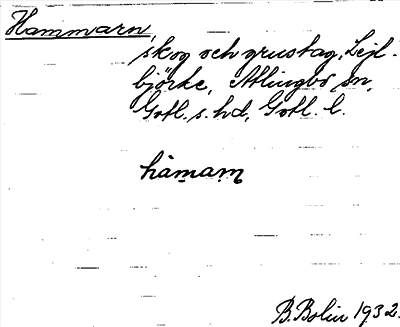 Hammarn,
skog och grustag, Lejl-
björke, Atlingbo sn,
Gotl. s. hd, Gotl. l.
hàmaṃ
B. Bolin 1932.